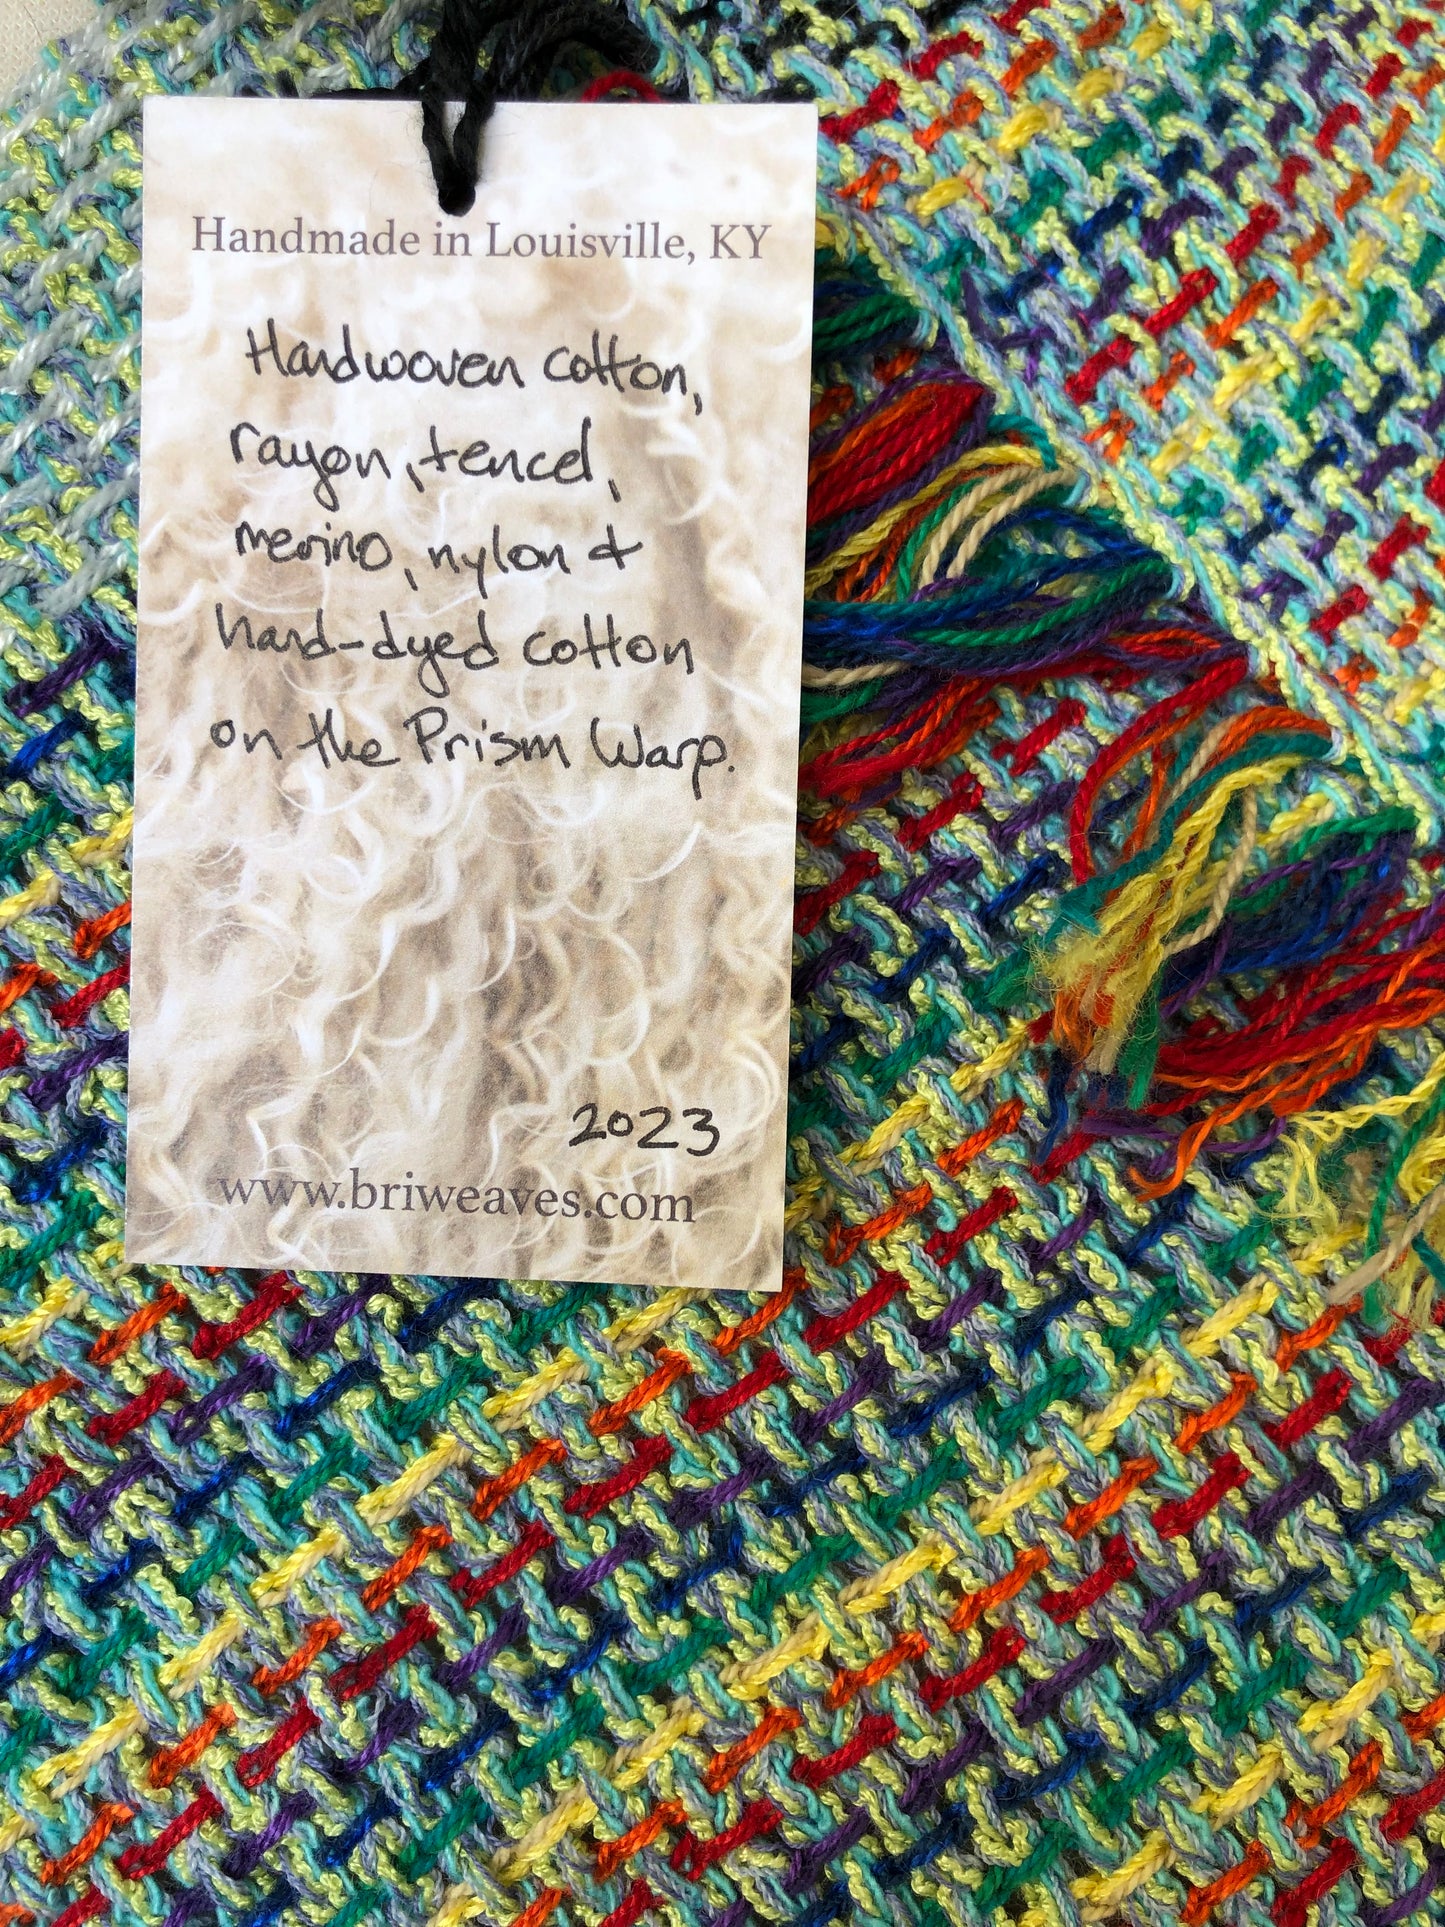 Handmade in Louisville, KY
Handwoven cotton,
rayon, tencel,
merino, nylon +
hand-dyed cotton
on the Prism Warp.
2023
www.briweaves.com